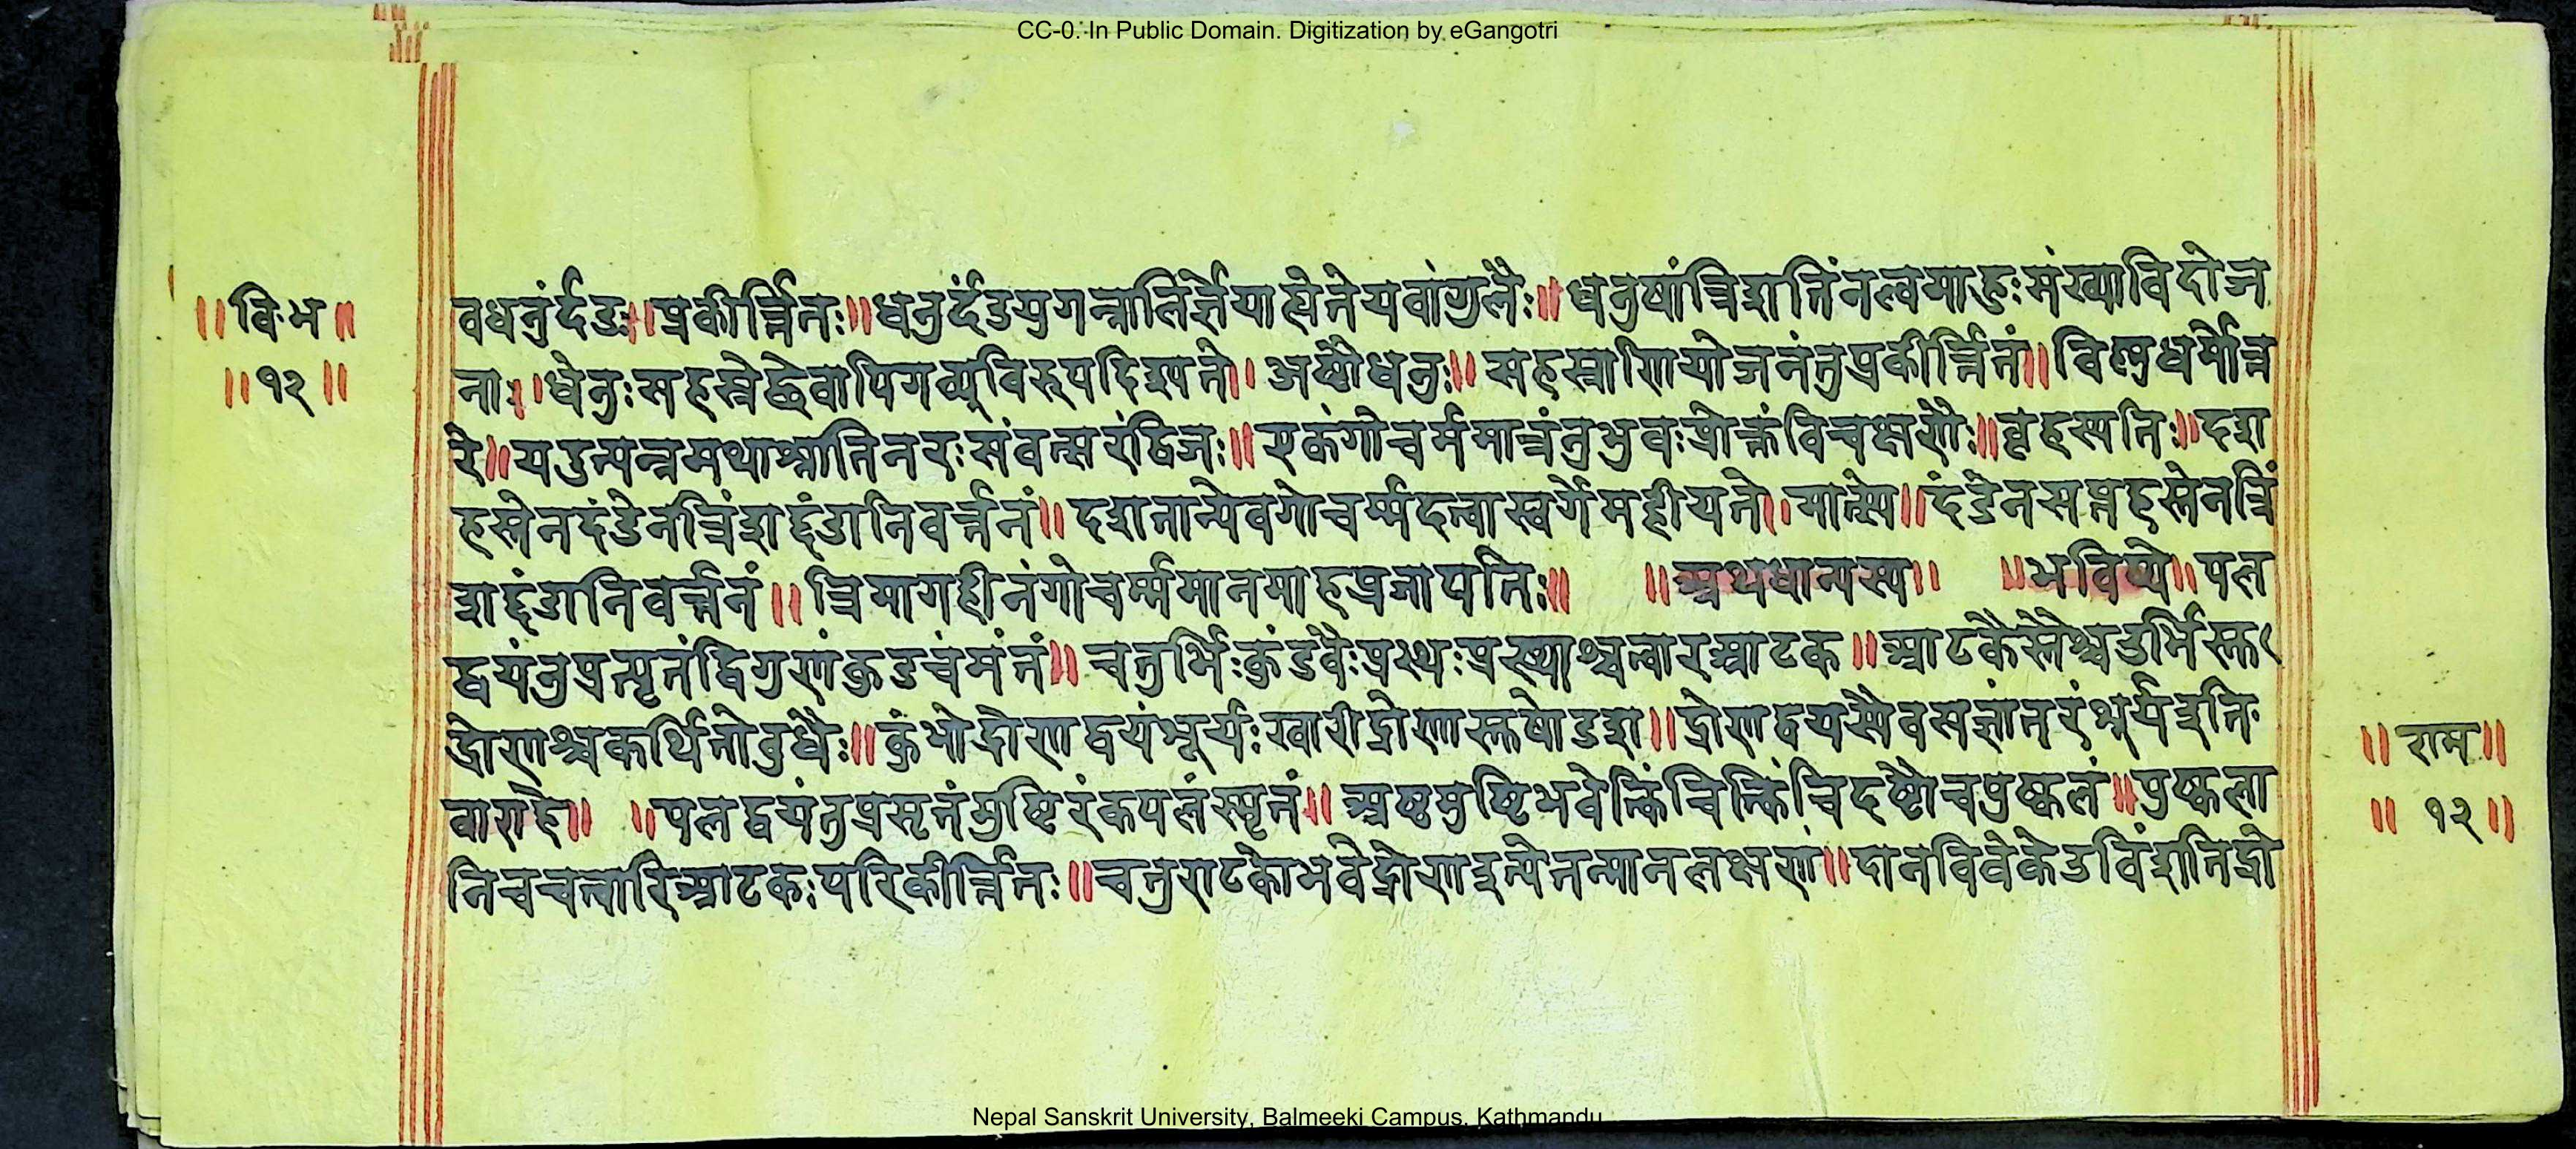 CC-0. In Public Domain. Digitization by eGangotri
॥वि·भ॥
॥१२॥
वधनुर्दंडः॥प्रकीर्त्तितः॥धनुर्दंडयुगन्नालिर्ज्ञेयाह्येतेयवांगुलैः॥धनुषांत्रिंशतिंनल्वमाहुःसंख्याविदोज
नाः॥धेनुःसहस्रेद्वेवापिगव्यूविरुपदिश्यते॥अष्टौधनुः॥सहस्राणियोजनंतुप्रकीर्त्तितं॥विष्णुधर्मोत्त
रे॥यदुत्पन्नमथाश्नातिनरःसंवत्सरंद्विजः॥एकंगोचर्ममात्रंतुभुवःप्रोक्तंविचक्षणैः॥वृहस्पतिः॥दश
हस्तेनदंडेनत्रिंशद्दंडानिवर्त्तनं॥दशतान्येवगोचर्म्मदत्वास्वर्गेमहीयते॥मात्स्ये॥दंडेनसप्तहस्तेनत्रिं
शद्दंडानिवर्त्तनं॥त्रिभागहीनंगोचर्म्ममानमाहप्रजापतिः॥ ॥अथधान्यस्य॥ ॥भविष्ये॥पल
द्वयंतुप्रसृतंद्विगुणंकुडवंमंतं॥चतुर्भिःकुंडवैःप्रस्थःप्रस्थाश्चत्वारआटक॥आटकैस्तैश्चडर्भिस्त
द्रोणश्चकथितोबुधैः॥कुंभोद्रोणद्वयंभूर्यःखारीद्रोणास्तषोडश॥द्रोणद्वयस्यैवसंज्ञांतरंभूर्यइति
वाराहे॥ ॥पलद्वयंतुप्रसृतंमुष्टिरंकपलंस्मृतं॥अष्टमुष्टिभवेत्किंचित्किंचिदष्टौचपुष्कलं॥पुष्कला
निचचत्वारिआटकःपरिकीर्त्तितः॥चतुराटकोभवेद्रोणइत्येतन्मानलक्षणं॥दानविवेकेउविंशतिद्रो
॥राम॥
॥१२॥
Nepal Sanskrit University, Balmeeki Campus, Kathmandu